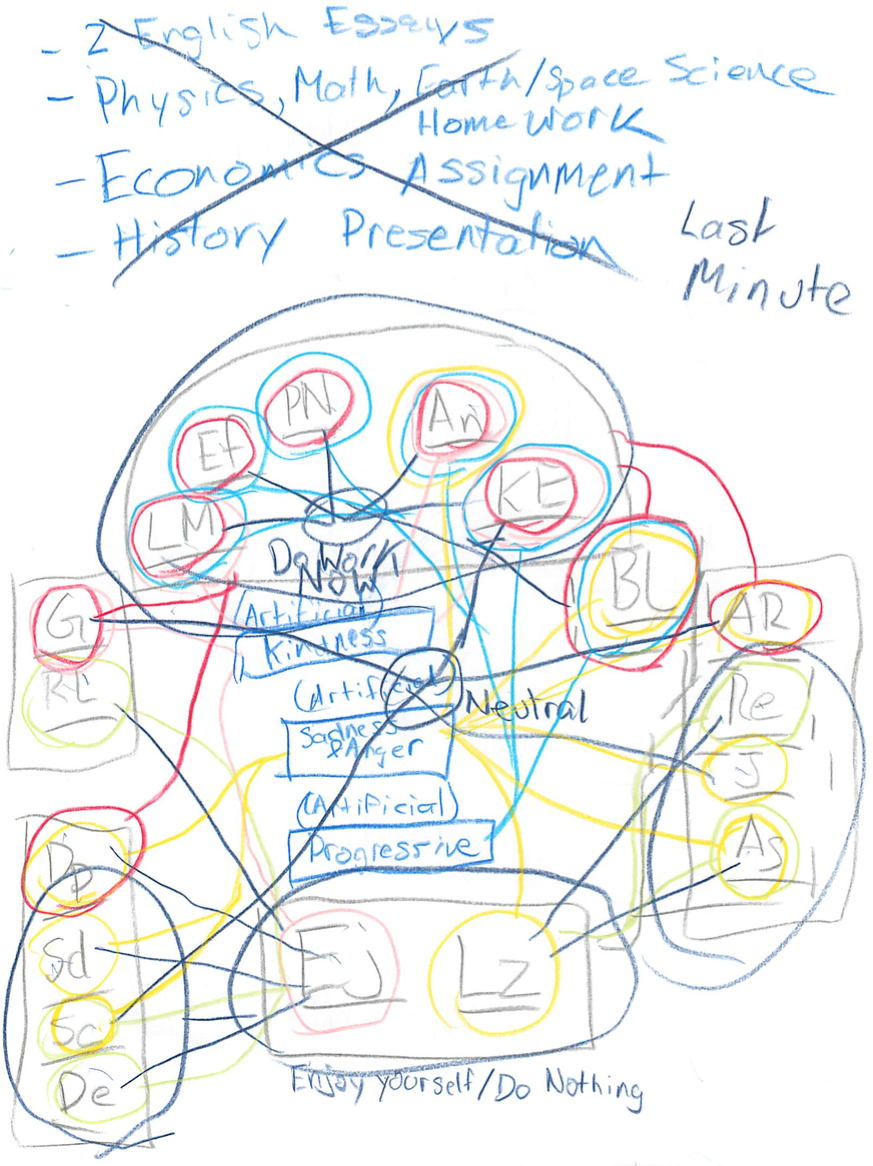 - 2 English Essays
- Physics, Math, Earth/Space Science
Homework
- Economics Assignment
- History Presentation
Last
Minute
PN
An
Ef
KE
LM
Do Work
Now
BL
(Artificial)
Kindness
G
AR
(Artificial)
Neutral
Re
Sadness
& Anger
J
(Artificial)
Progressive
As
Dp
Sd
EJ
Lz
Sc
De
Enjoy yourself/Do Nothing